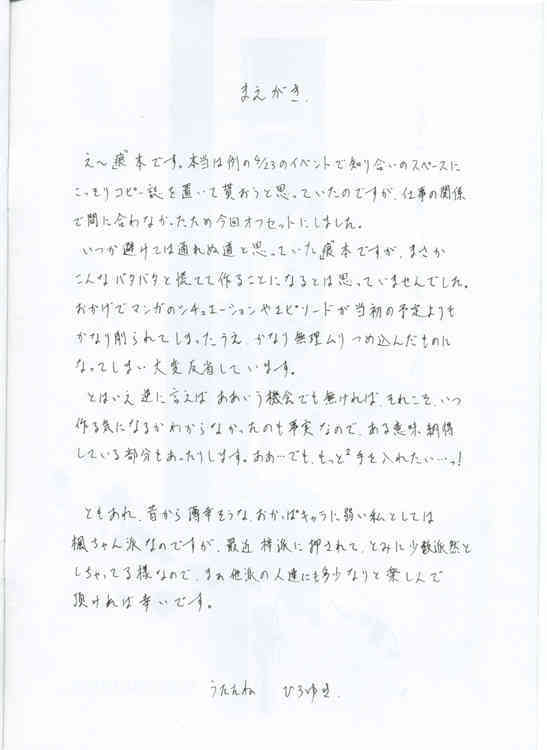 まえがき.
え〜痕本です。本当は例の9/23のイベントで知り合いのスペースに
こっそりコピー誌を置いて貰おうと思っていたのですが、仕事の関係
で間に合わなかったため今回オフセットにしました。
いつか避けては通れぬ道と思っていた痕本ですが、まさか
こんなバタバタと慌てて作ることになるとは思っていませんでした。
おかげでマンガのシチュエーションやエピソードが当初の予定よりも
かなり削られてしまったうえ、かなり無理ムリつめ込んだものに
なってしまい大変反省しています。
とはいえ逆に言えばああいう機会でも無ければ、それこそ、いつ
作る気になるかわからなかったのも事実なので、ある意味納得
している部分もあったりします。ああ…でも、もっと²手を入れたい…っ!
ともあれ、昔から薄幸そうな、おかっぱキャラに弱い私としては
楓ちゃん派なのですが、最近梓派に押されて、とみに少数派然と
しちゃってる様なので、まぁ他派の人達にも多少なりと楽しんで
頂ければ幸いです。
うたたね ひろゆき.